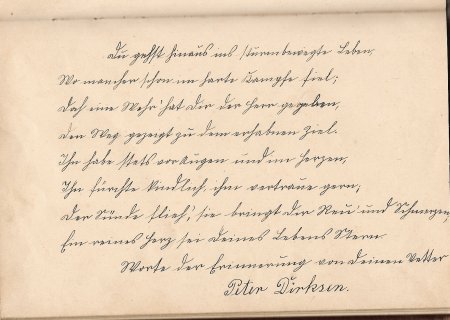 Du gehst hinaus ins sturmbewegte Leben,
Wo mancher schon im harte Kampfe fiel;
Doch eine Wehr' hat Dir der Herr gegeben,
Den Weg gezeigt zu dem erhabnen Ziel.
Ihn habe stets vor Augen und im Herzen,
Ihn fürchte kindlich, ihm vertraue gern;
Der Sünde flieh', sie bringt dir Reu' und Schmerzen,
Ein reines Herz sei deines Lebens Stern.
Worte der Erinnerung von deinen Vetter
Peter Dirksen.